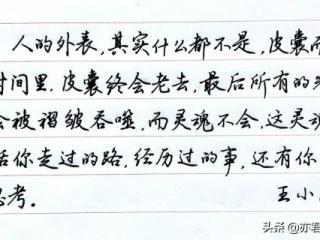 人的外表,其实什么都不是,皮囊而
时间里,皮囊终会老去,最后所有的
会被褶皱吞噬,而灵魂不会,这灵魂
你走过的路,经历过的事,还有你
思考。
王小
头条 @亦君